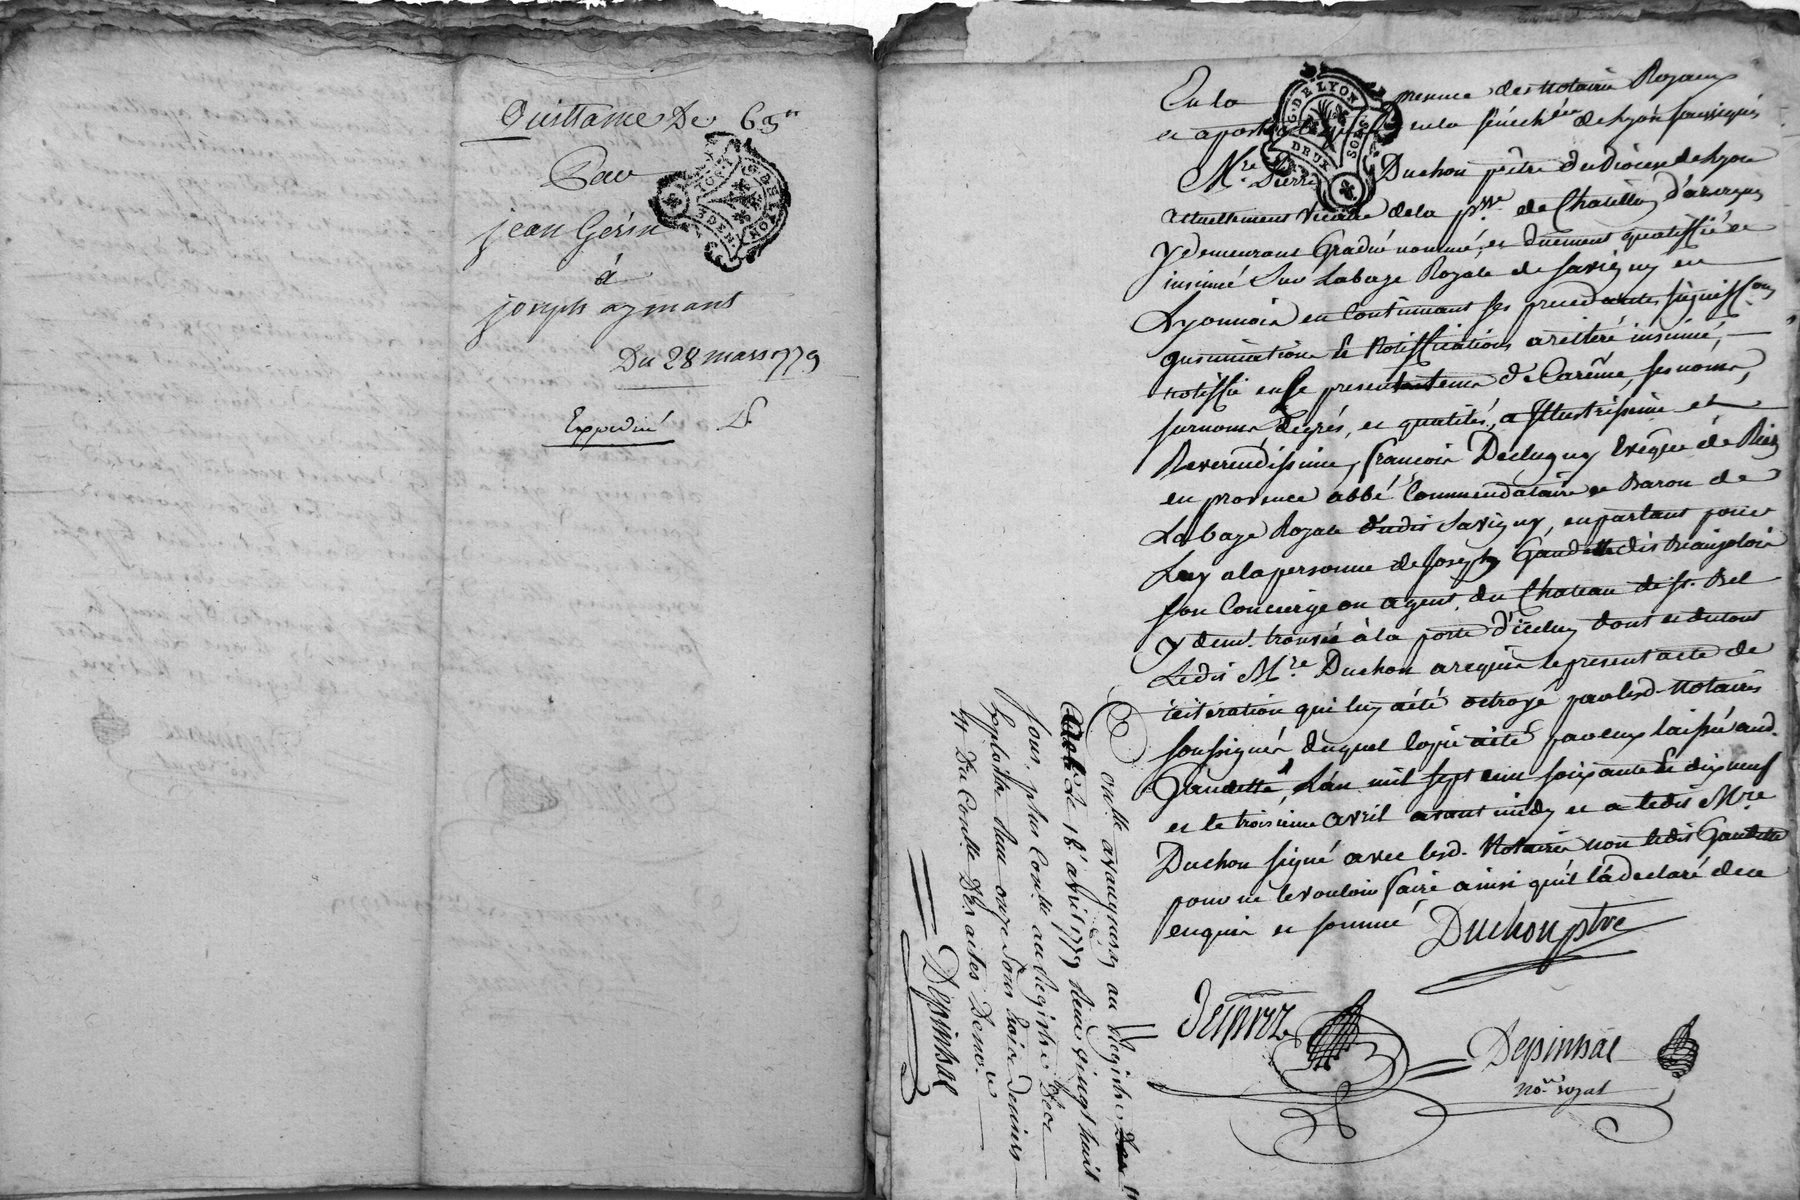 Quittance De 63 tt
Par
jean Gerin
à
joseph aymant
Du 28 mars 1779
Expedié
G. DE LYON
DEUX SOLS
G. DE LYON
DEUX SOLS
En la presence des Notaires Royaux
et apostoliques en la sénéchée de Lyon soussignés
Mre. Pierre Duchon prêtre du Diocese de Lyon
actuellement vicaire de la psse de Chatillon d'azergues
y demeurant Gradué nommé, et duement qualiffié et
insinué sur Labaye Royale de Savigny en
Lyonnois en Continuant ses precedantes signiff.ons
qu'insinuations & Notiffications a réitéré insinué,
notiffié en Ce present tems de Carême, ses noms,
surnoms degrés, et qualités, a Illustrissime et
Reverendissime, françois Declugny Evêque de Riez
en provence abbé Commendataire et Baron de
Labaye Royale dudit Savigny, en parlant pour
Luy a la personne de Joseph Gaudette dit Beaujolois
son Concierge ou agent du Chateau de St. Bel
y demt. trouvé à la porte d'iceluy dont et du tout
Ledit Mre. Duchon a requis le present acte de
réitération qui luy a été octroyé par lesd. Notaires
soussignés duquel Copie a été par eux laissée aud.
Gaudette, L'an mil sept cent soixante & dix neuf
et le troisieme avril avant midy et a ledit Mre
Duchon signé avec lesd. Notaires non ledit Gaudette
pour ne le vouloir faire ainsi qu'il l'a declaré de ce
enquis et sommé
Duchon ptre
Depinsac
Nore. royal
Con.lle au registre Des
le 18 avril 1779 vingt huit
sous. plus Con.lle au Registre
onze sous trois deniers
Du Con.lle Des actes De
Depinsac